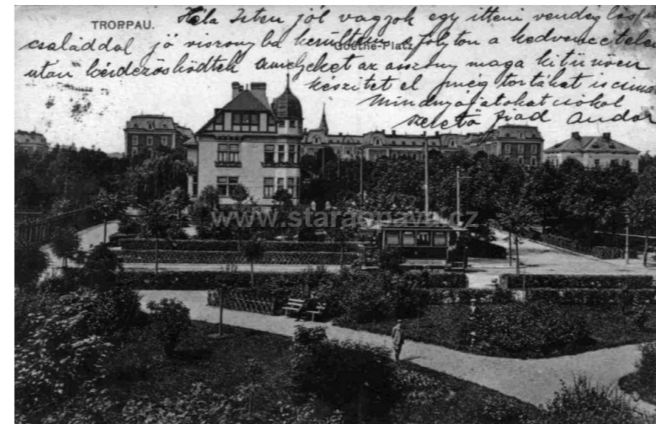 TROPPAU.
Goethe-Platz
Hála Isten jól vagyok egy itteni vendéglős
családdal jó viszonyba kerültem s folyton a kedvencz ételem
után kérdezősködtek amelyeket az asszony maga kitünően
készitet el még tortákat is
Mindnyájatokat csókol
szerető fiad Andor
www.staraopava.cz